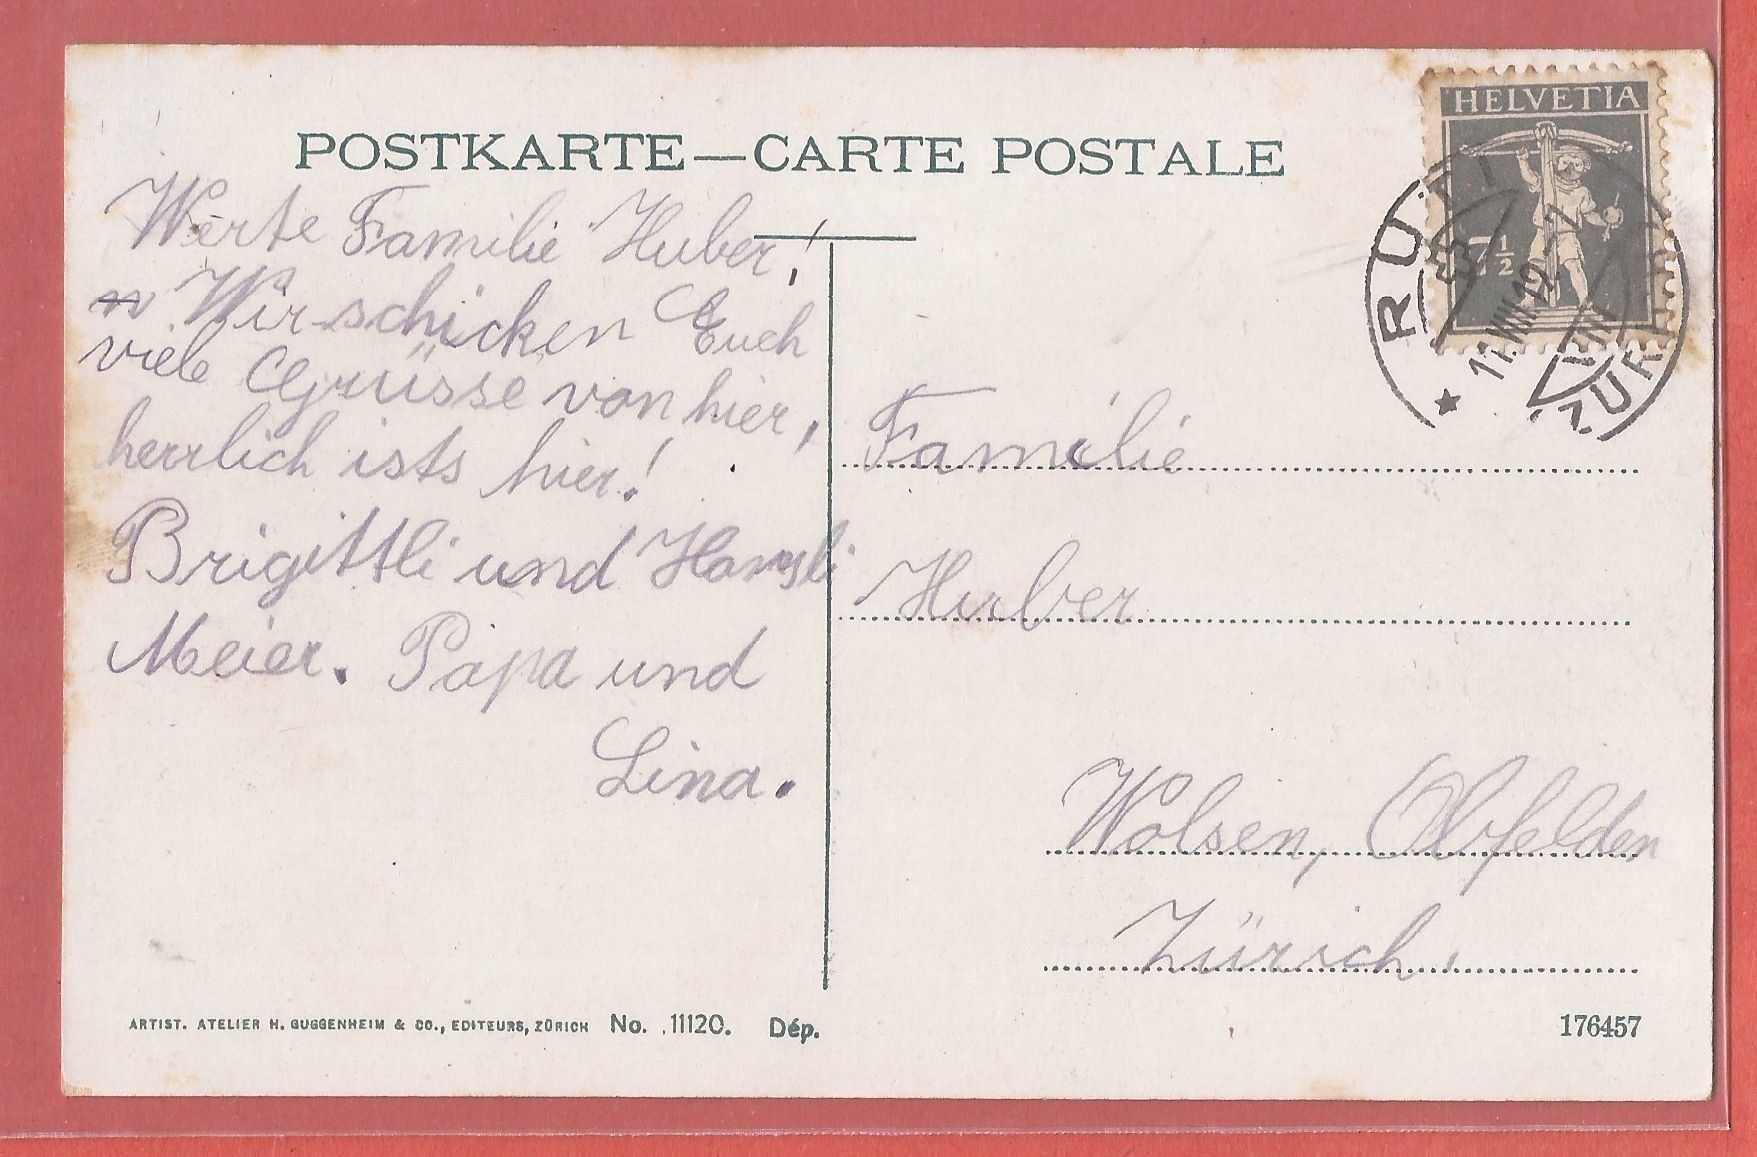 POSTKARTE—CARTE POSTALE
HELVETIA
7½
RÜTI
ZÜRICH
Werte Familie Huber!
Wir schicken Euch
viele Grüsse von hier,
herrlich ists hier!
Brigittli und Hansli
Meier. Papa und
Lina.
Familie
Huber
Wolsen, Obfelden
Zürich.
ARTIST. ATELIER H. GUGGENHEIM & CO., EDITEURS, ZÜRICH No. 11120. Dép.
176457